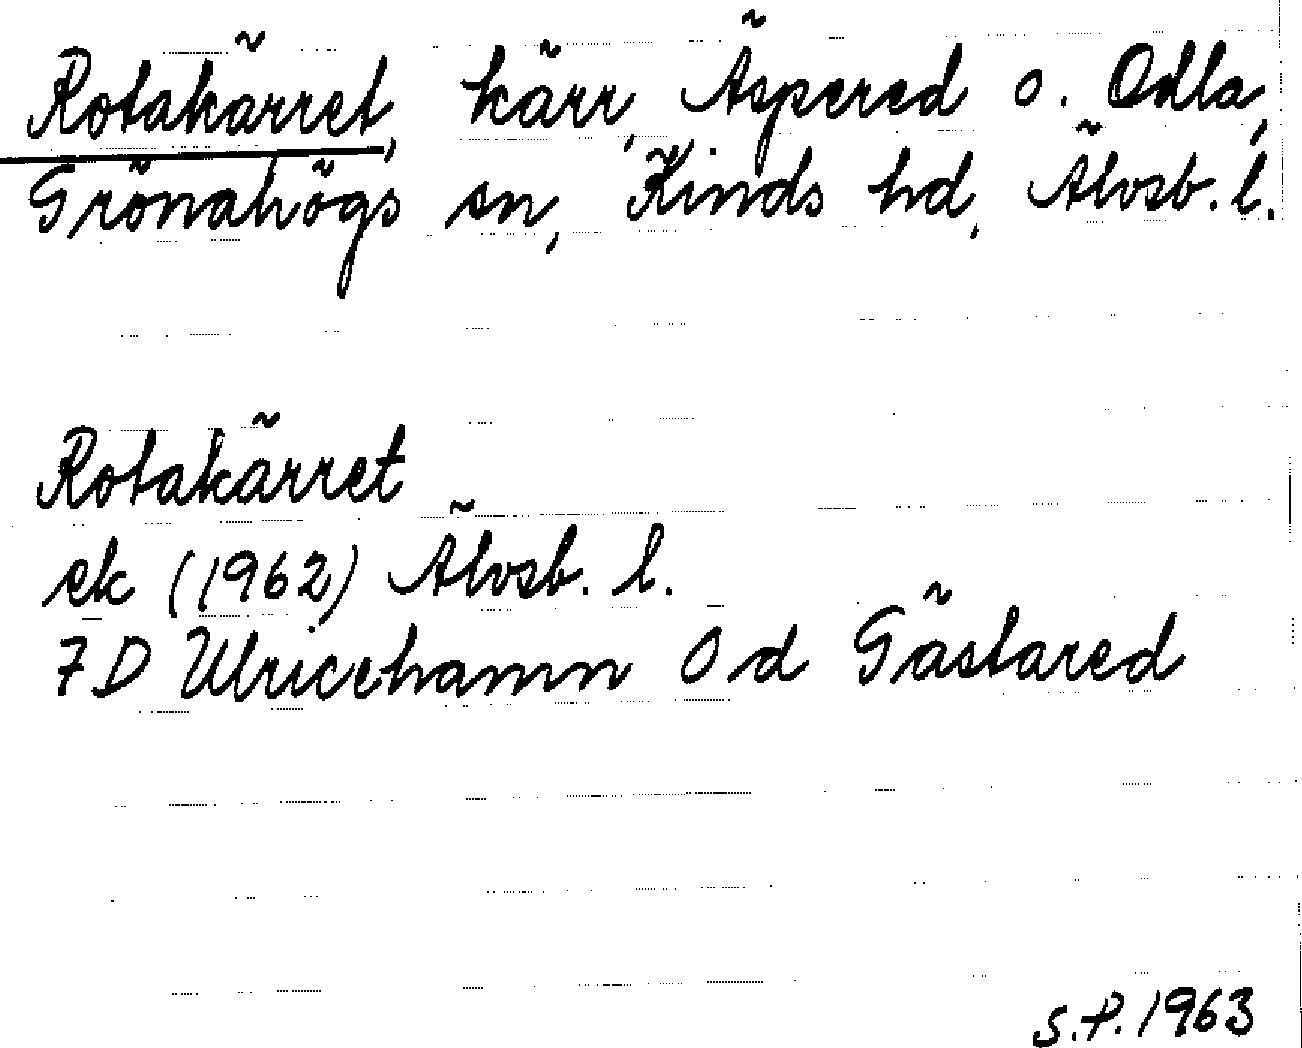 Rotakärret, kärr, Äspered o. Odla,
Grönahögs sn, Kinds hd, Älvsb. l.
Rotakärret
ek (1962) Älvsb. l.
7D Ulricehamn 0 d Gästared
S.P. 1963